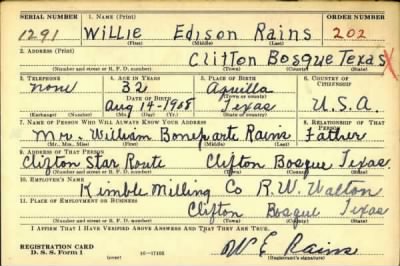 SERIAL NUMBER 1. NAME (Print) ORDER NUMBER
1291 Willie Edison Rains 202
(First) (Middle) (Last)
2. ADDRESS (Print)
Clifton Bosque Texas X
(Number and street or R. F. D. number) (Town) (County) (State)
3. TELEPHONE 4. AGE IN YEARS 5. PLACE OF BIRTH 6. COUNTRY OF CITIZENSHIP
none 32 Aquilla U.S.A.
DATE OF BIRTH (Town or county)
Aug 14-1908 Texas
(Exchange) (Number) (Mo.) (Day) (Yr.) (State or country)
7. NAME OF PERSON WHO WILL ALWAYS KNOW YOUR ADDRESS 8. RELATIONSHIP OF THAT PERSON
Mr. William Boneparte Rains Father
(Mr., Mrs., Miss) (First) (Middle) (Last)
9. ADDRESS OF THAT PERSON
Clifton Star Route Clifton Bosque Texas
(Number and street or R. F. D. number) (Town) (County) (State)
10. EMPLOYER'S NAME
Kimble Milling Co R.W. Walton
11. PLACE OF EMPLOYMENT OR BUSINESS
Clifton Bosque Texas
(Number and street or R. F. D. number) (Town) (County) (State)
I AFFIRM THAT I HAVE VERIFIED ABOVE ANSWERS AND THAT THEY ARE TRUE.
REGISTRATION CARD
D. S. S. Form 1 (over) 16-17105 W E Rains
(Registrant's signature)